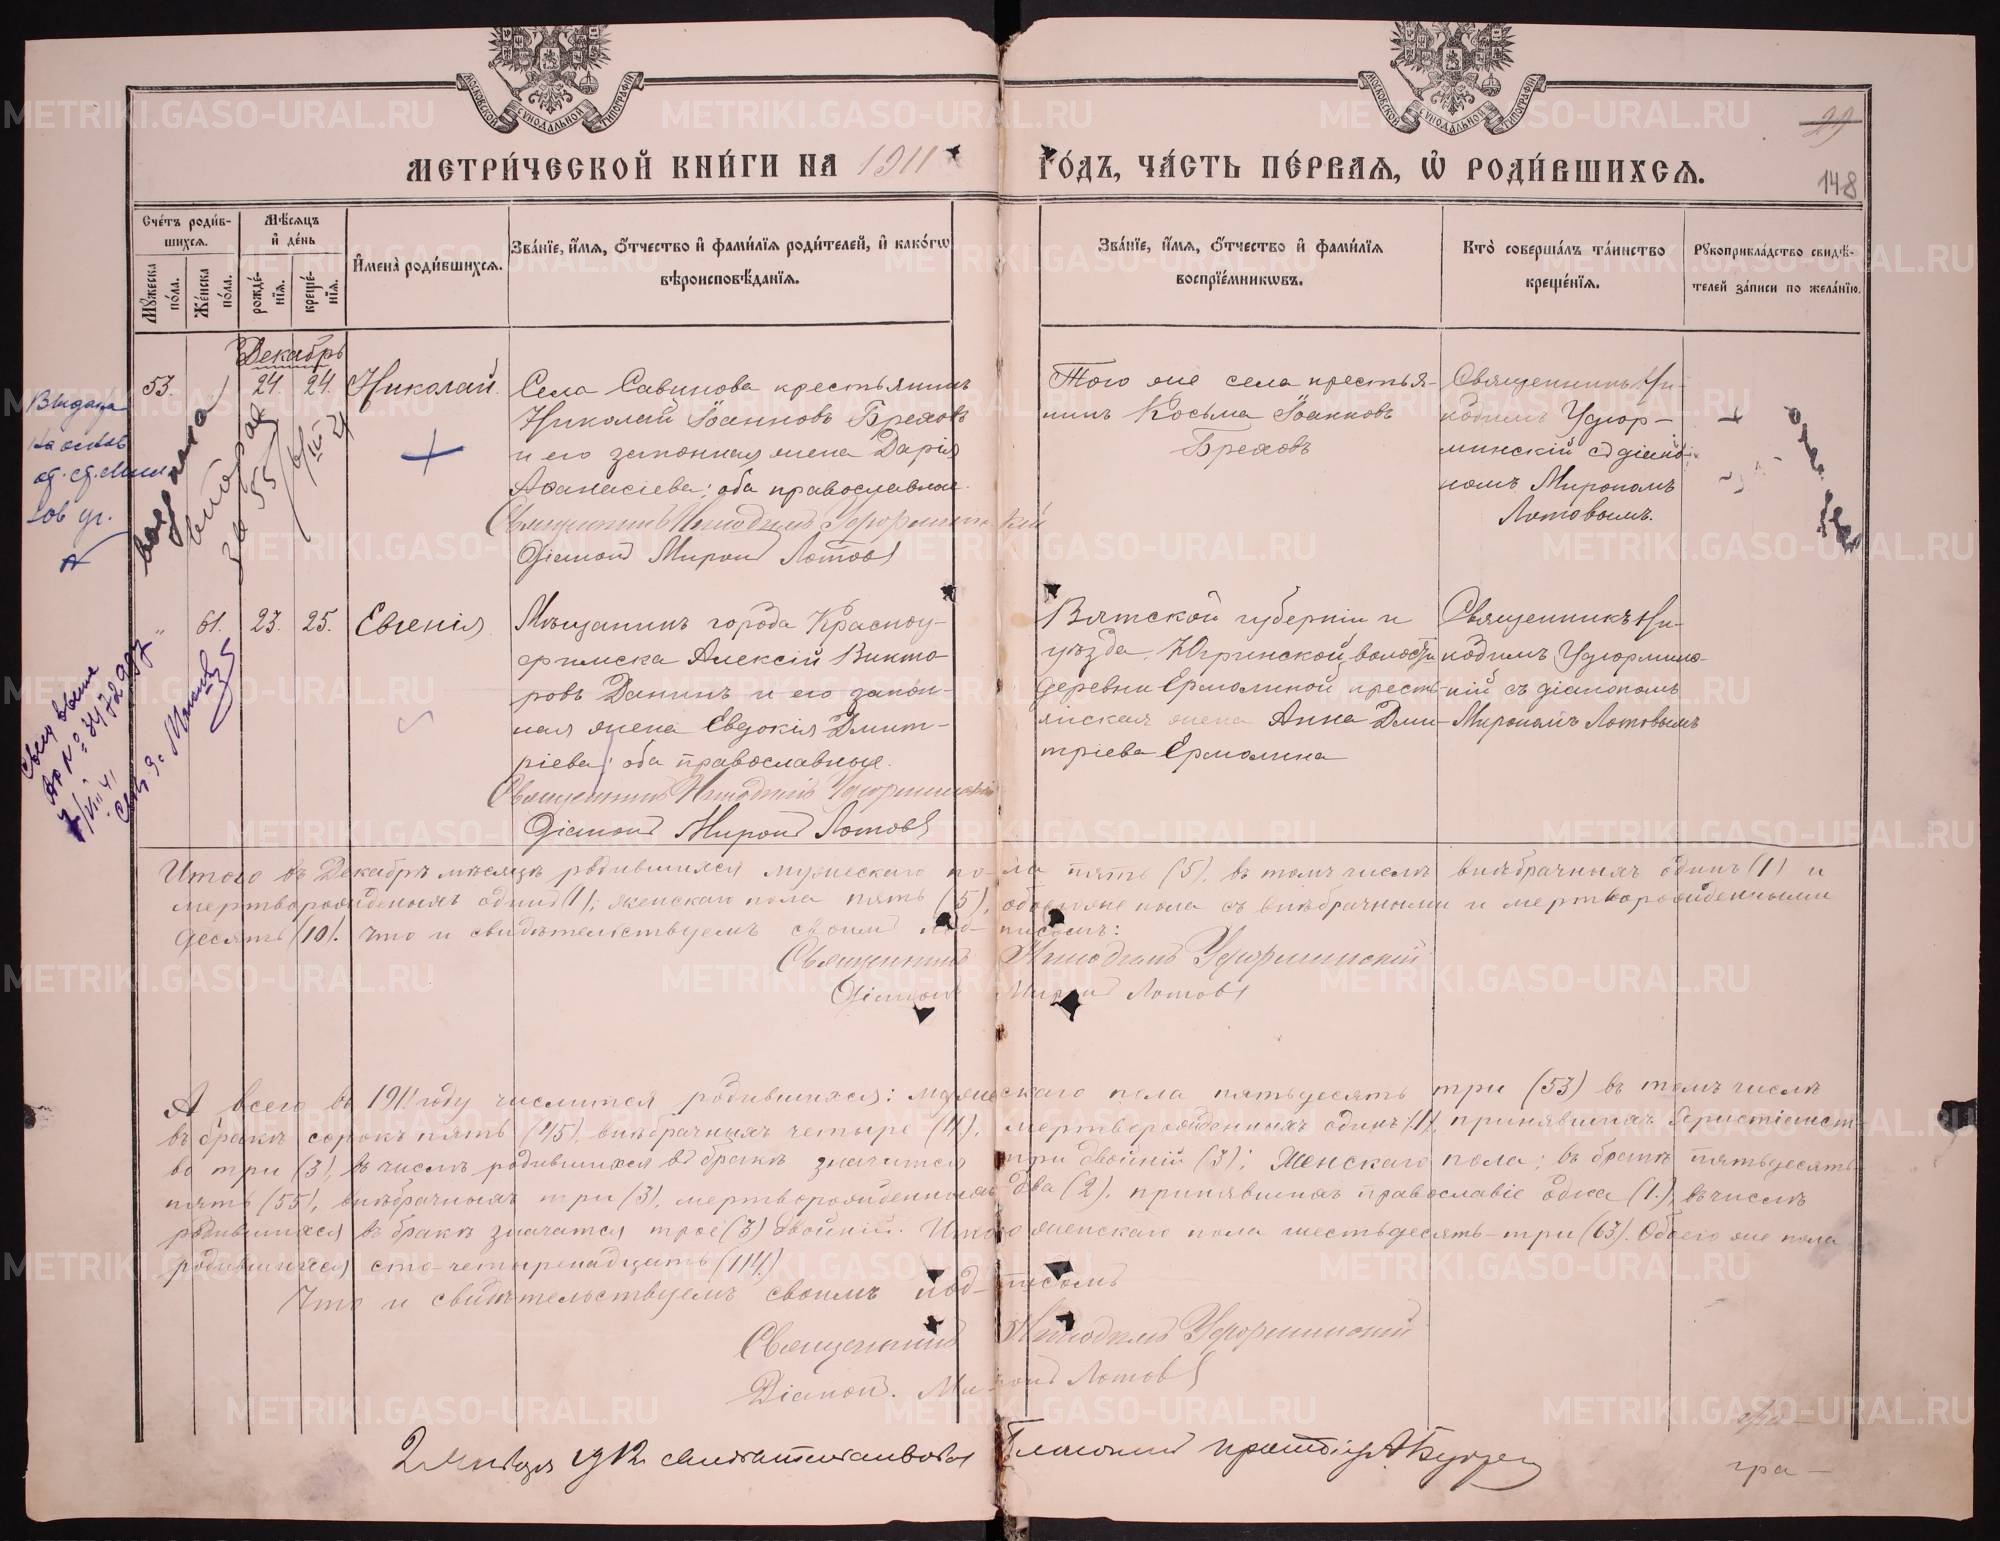 МОСКОВСКОЙ СѴНОДАЛЬНОЙ ТИПОГРАФІИ
МОСКОВСКОЙ СѴНОДАЛЬНОЙ ТИПОГРАФІИ
29
МЕТРИ́ЧЕСКОЙ КНИ́ГИ НА 1911
ГО́ДЪ, ЧА́СТЬ ПЕ́РВАЯ, Ѡ РОДИ́ВШИХСЯ.
148
Сче́тъ роди́в-
шихся.
Мѣ́сяцъ
и́ де́нь
И҆мена̀ роди́вшихся.
Зва́нїе, и҆́мя, о҆́тчество и҆ фами́лїя роди́телей, и҆ како́гѡ
вѣроисповѣ́данїя.
Зва́нїе, и҆́мя, о҆́тчество и҆ фами́лїя
воспрїе́мникѡвъ.
Кто̀ соверша́лъ та́инство
креще́нїя.
Рукоприкла́дство свидѣ́-
телей за́писи по жела́нїю.
Мужеска
по́ла.
Же́нска
по́ла.
рожде́-
нїя.
креще́-
нїя.
Декабрь
53. 24. 24. Николай.
Села Савинова крестьянинъ
Николай Іоанновъ Бреховъ
и его законная жена Дарія
Аѳанасіева; оба православные.
Священникъ Никодимъ Удюрминскій
Діаконъ Миронъ Лотовъ
Того же села крестья-
нинъ Косьма Іоанновъ
Бреховъ
Священникъ Ни-
кодимъ Удюр-
минскій съ діако-
номъ Мирономъ
Лотовымъ.
Выдана
вторая
" 61. 23. 25. Евгенія
Мѣщанинъ города Красноу-
фимска Алексій Викто-
ровъ Данинъ и его закон-
ная жена Евдокія Дмит-
ріева; оба православные.
Священникъ Никодимъ Удюрминскій
Діаконъ Миронъ Лотовъ
Вятской губерніи и
уѣзда, Югринской волости
деревни Ермолиной кресть-
янская жена Анна Дми-
тріева Ермолина
Священникъ Ни-
кодимъ Удюрмин-
скій съ діакономъ
Мирономъ Лотовымъ
Итого въ Декабрѣ мѣсяцѣ родившихся мужескаго по- ла пять (5), въ томъ числѣ внѣбрачныхъ одинъ (1) и
мертворожденныхъ одинъ (1); женскаго пола пять (5), обоего же пола съ внѣбрачными и мертворожденными
десять (10). Что и свидѣтельствуемъ своимъ под- писомъ:
Священникъ Никодимъ Удюрминскій
Діаконъ Миронъ Лотовъ
А всего въ 1911 году числится родившихся: мужескаго пола пятьдесятъ три (53) въ томъ числѣ
въ бракѣ сорокъ пять (45), внѣбрачныхъ четыре (4), мертворожденныхъ одинъ (1), принявшихъ христіанст-
во три (3), въ числѣ родившихся въ бракѣ значится три двойни (3); Женскаго пола; въ бракѣ пятьдесятъ
пять (55), внѣбрачныхъ три (3), мертворожденныхъ два (2), принявшихъ православіе одна (1), въ числѣ
родившихся въ бракѣ значатся трое (3) двойни. Итого женскаго пола шестьдесятъ-три (63). Обоего же пола
родившихся сто-четырнадцать (114.)
Что и свидѣтельствуемъ своимъ под- писомъ
Священникъ Никодимъ Удюрминскій
Діаконъ. Миронъ Лотовъ
2 Января 1912
METRIKI.GASO-URAL.RU